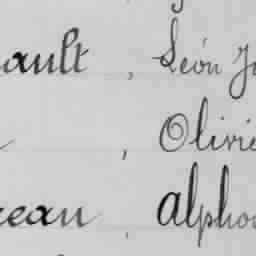 ault, Léon J
, Olivi
eau, Alpho